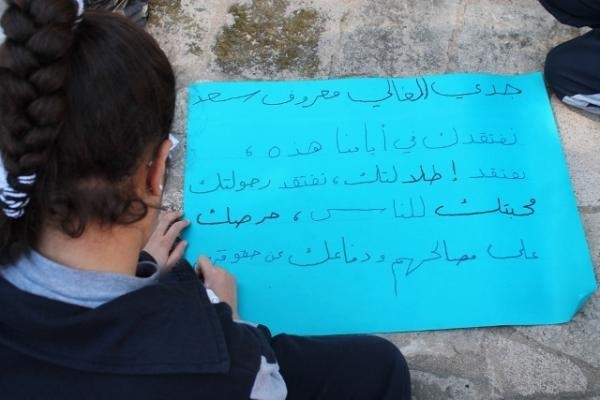 جدي الغالي معروف سعد
نفتقدك في أيامنا هذه ،
نفتقد إطلالتك ، نفتقد رجولتك
محبتك للناس ، حرصك
على مصالحهم ودفاعك عن